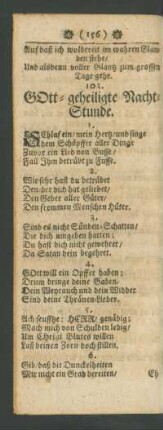 (156)
Auf daß ich wolbereit im wahren Glau-
ben stehe/
Und alsdenn voller Glantz zum grossen
Tage gehe.
101.
GOtt-geheiligte Nacht-
Stunde.
1.
SChlaf ein/ mein Hertz/ und singe
Dem Schöpffer aller Dinge
Zuvor ein Lied von Busse/
Fall Ihm betrübt zu Fusse.
2.
Wie sehr hast du betrübet
Den/ der dich hat geliebet/
Den Geber aller Güter/
Den frommen Menschen Hüter.
3.
Sind es nicht Sünden-Schatten/
Die dich umgeben hatten;
Du hast dich nicht gewehret/
Da Satan dein begehret.
4.
GOtt will ein Opffer haben;
Drum bringe deine Gaben/
Dein Weyrauch und dein Widder
Sind deine Thränen-Lieder.
5.
Ach seufftze: HERR/ genädig;
Mach mich von Schulden ledig/
Um Christi Blutes willen
Laß deinen Zorn doch stillen.
6.
Gib/ daß die Dunckelheiten
Mir nicht ein Grab bereiten/